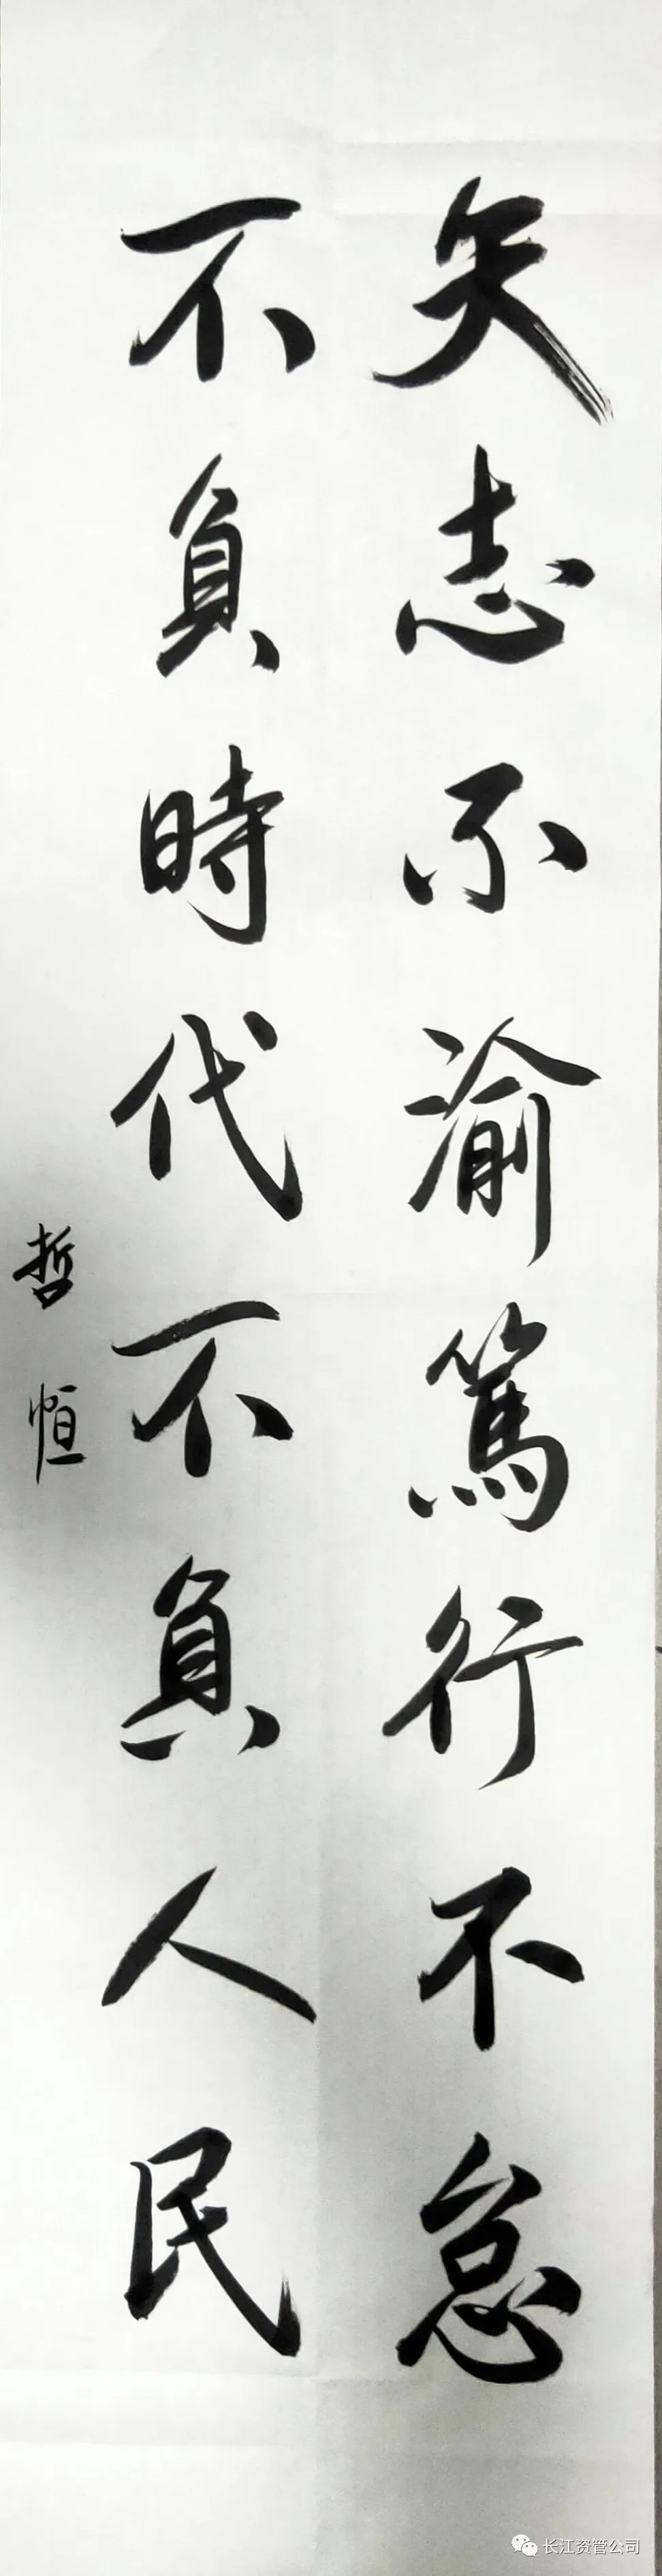 矢志不渝篤行不怠
不負時代不負人民
哲恒
长江资管公司